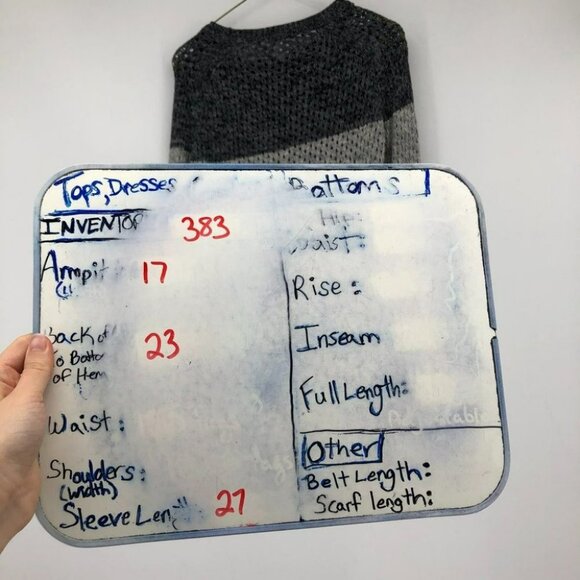 Tops, Dresses
INVENTOR 383
Armpit 17
Back of 23
to Botto
of Hem
Waist:
Shoulders:
(width)
Sleeve Len 27
Bottoms
Hip:
Waist:
Rise:
Inseam
Full Length:
Other
Belt Length:
Scarf length: